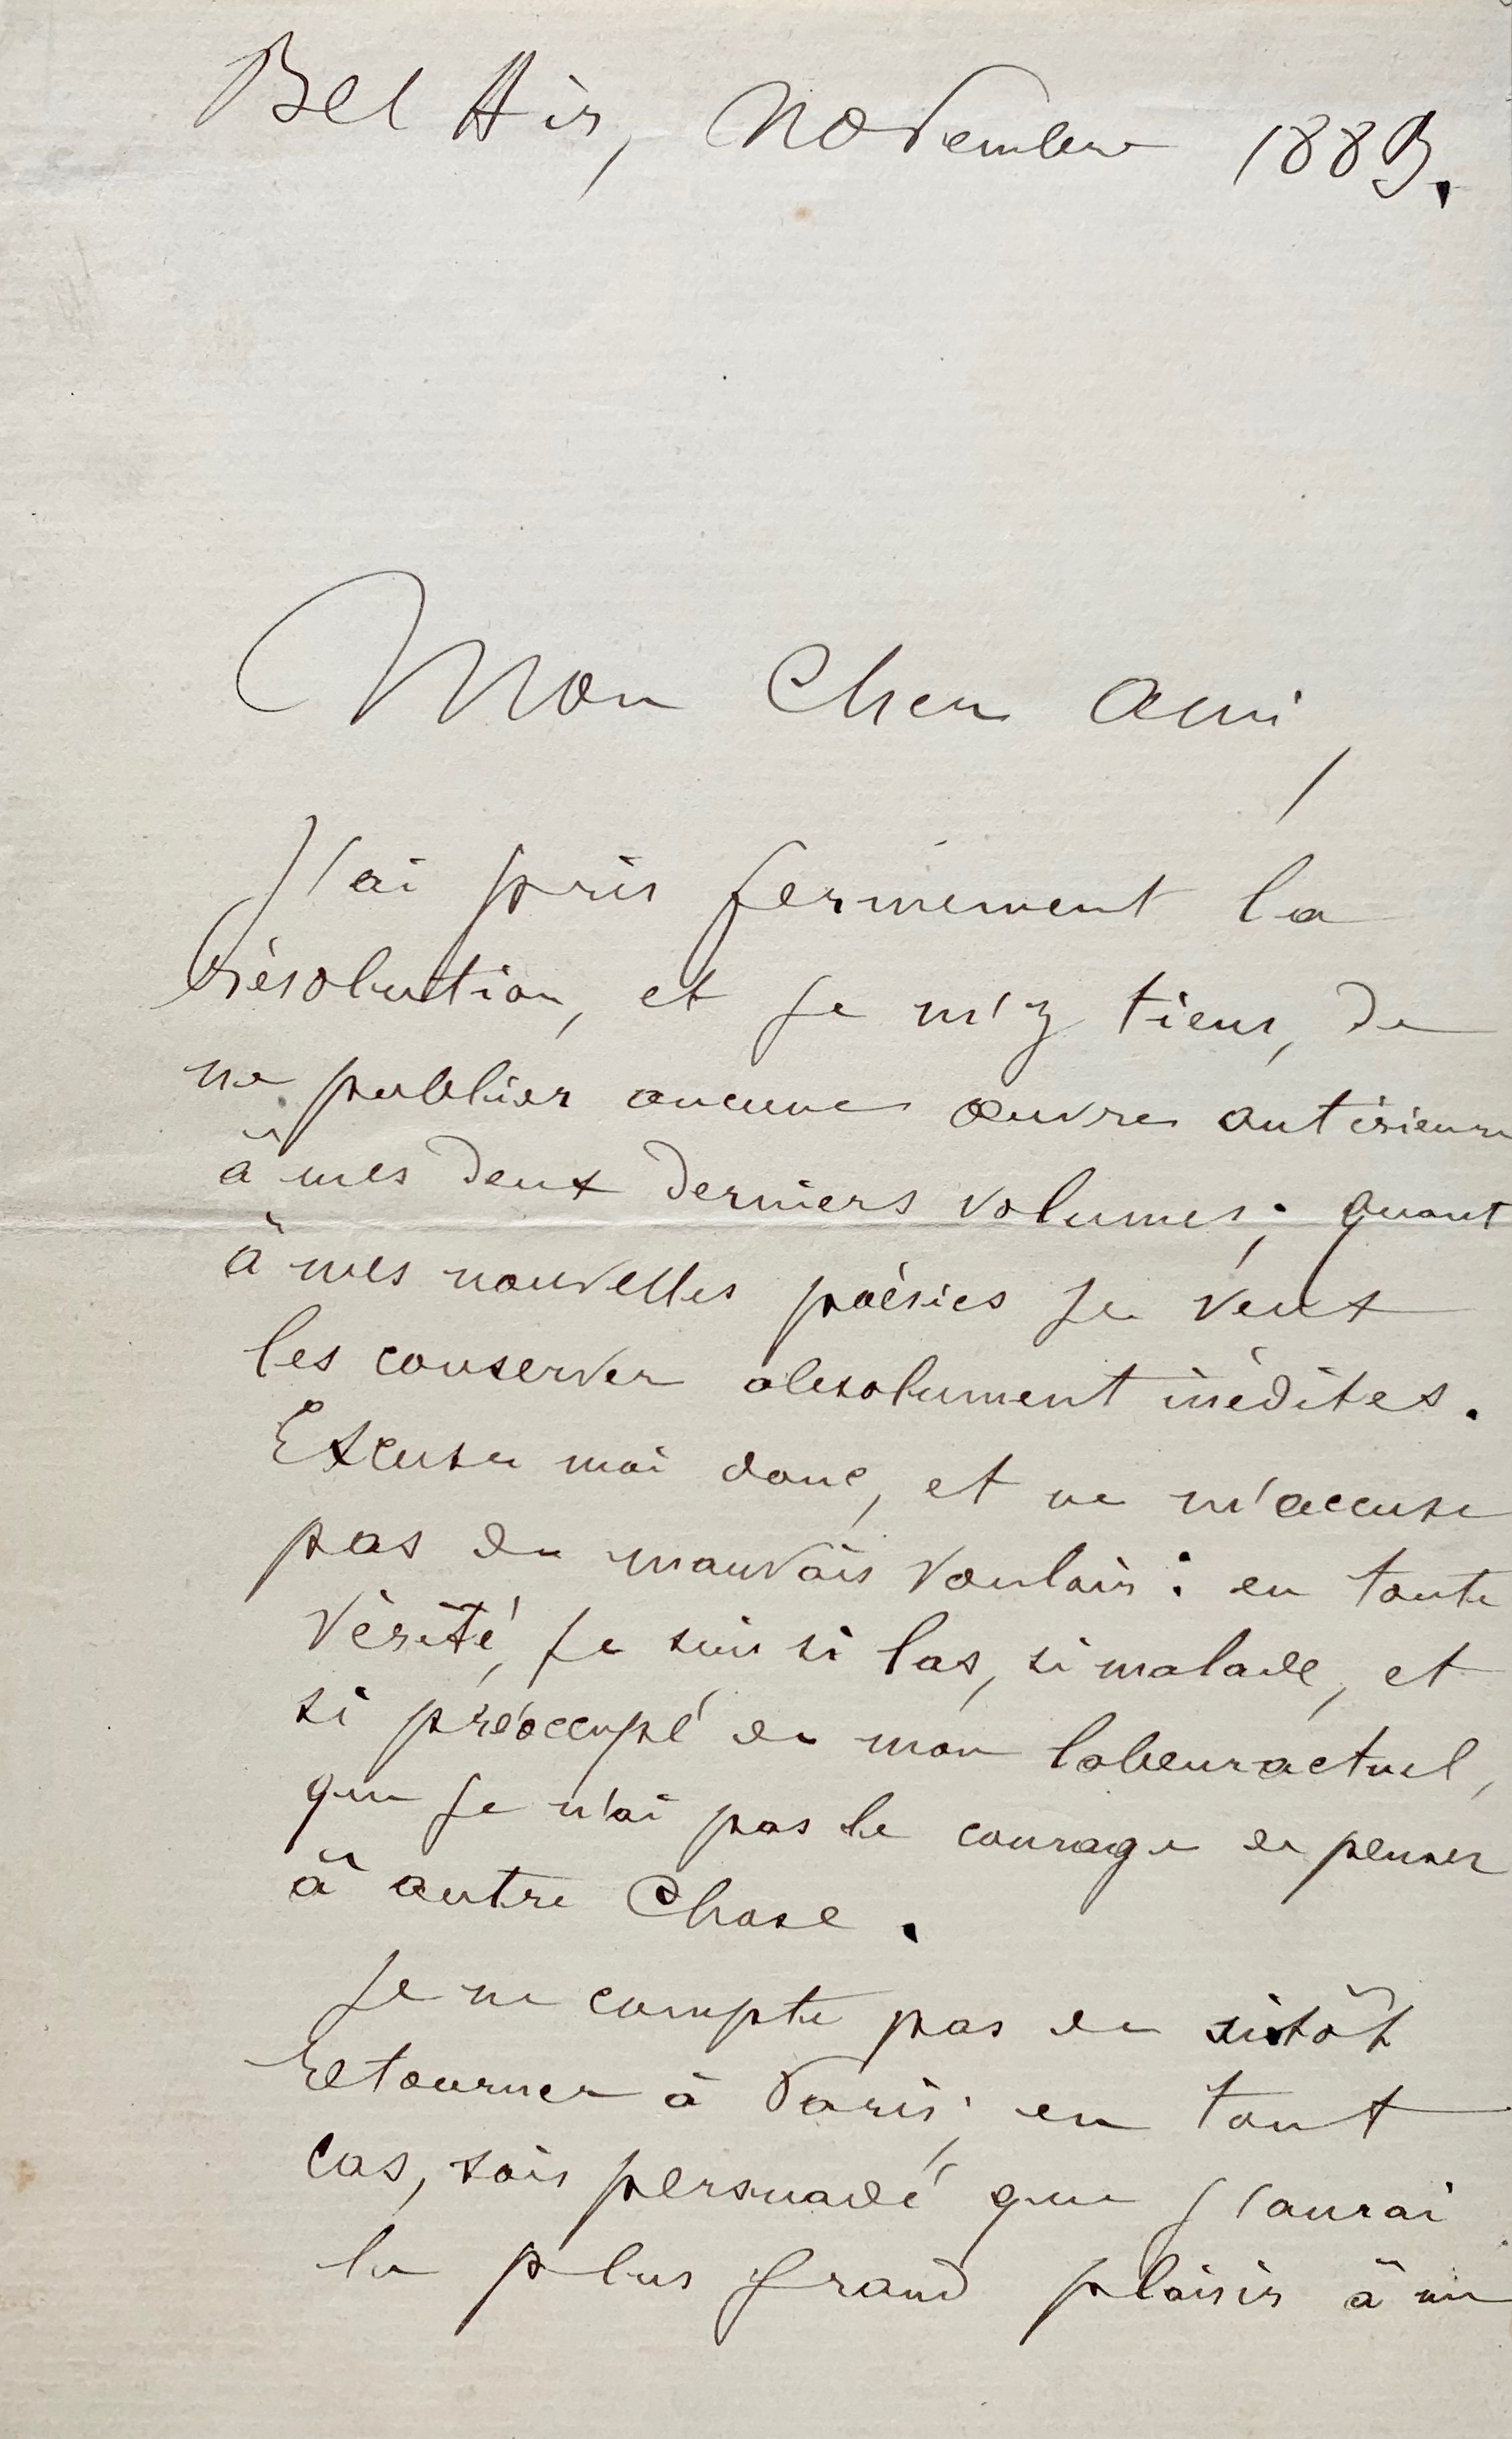 Bel Air, Novembre 1883.
Mon Cher ami,
J'ai pris fermement la
résolution, et je m'y tiens, de
ne publier aucune œuvre antérieure
à mes deux derniers volumes; quant
à mes nouvelles poésies je veux
les conserver absolument inédites.
Excuse moi donc, et ne m'accuse
pas de mauvais vouloir : en toute
vérité, je suis si las, si malade, et
si préoccupé de mon labeur actuel,
que je n'ai pas le courage de penser
à autre Chose.
Je ne compte pas de sitôt
retourner à Paris; en tout
cas, sois persuadé que j'aurai
le plus grand plaisir à me